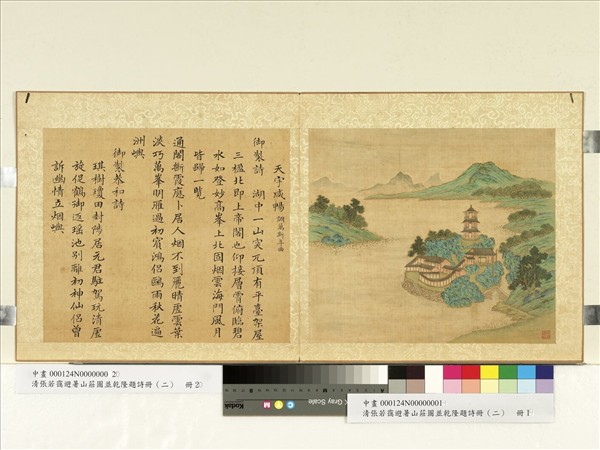 天宇咸暢 調萬斯年曲
御製詩 湖中一山突兀頂有平臺架屋
三楹北即上帝閣也仰接層霄俯臨碧
水如登妙高峯上北固烟雲海門風月
皆歸一覽
通閣斷霞應卜居人烟不到麗晴虛雲葉
淡巧萬峯明雁過初賓鴻侶鷗雨秋花遍
洲嶼
御製恭和詩
琪樹瓊田封隝居元君駐駕玩清虛
旋促鶴御返瑶池別離初神仙侶曾
訴幽情立烟嶼
中畫 000124N0000000 2〉
清張若靄避暑山莊圖並乾隆題詩冊（二） 冊 2〉
Kodak
C I M
Gray Scale
中畫 000124N00000001
清張若靄避暑山莊圖並乾隆題詩冊（二） 冊 1